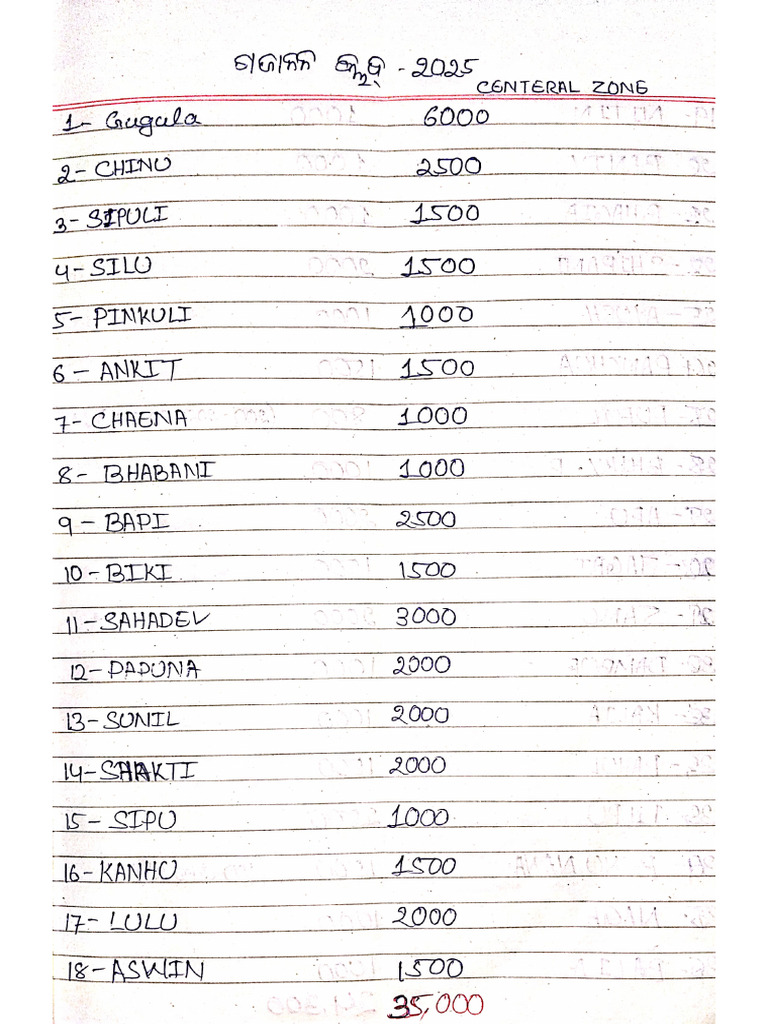 ଗଜାନନ କ୍ଲବ୍ - 2025
CENTERAL ZONE
1- Gugula 6000
2- CHINU 2500
3- SIPULI 1500
4- SILU 1500
5- PINKULI 1000
6- ANKIT 1500
7- CHAENA 1000
8- BHABANI 1000
9- BAPI 2500
10- BIKI 1500
11- SAHADEV 3000
12- PAPUNA 2000
13- SUNIL 2000
14- SHAKTI 2000
15- SIPU 1000
16- KANHU 1500
17- LULU 2000
18- ASWIN 1500
35,000